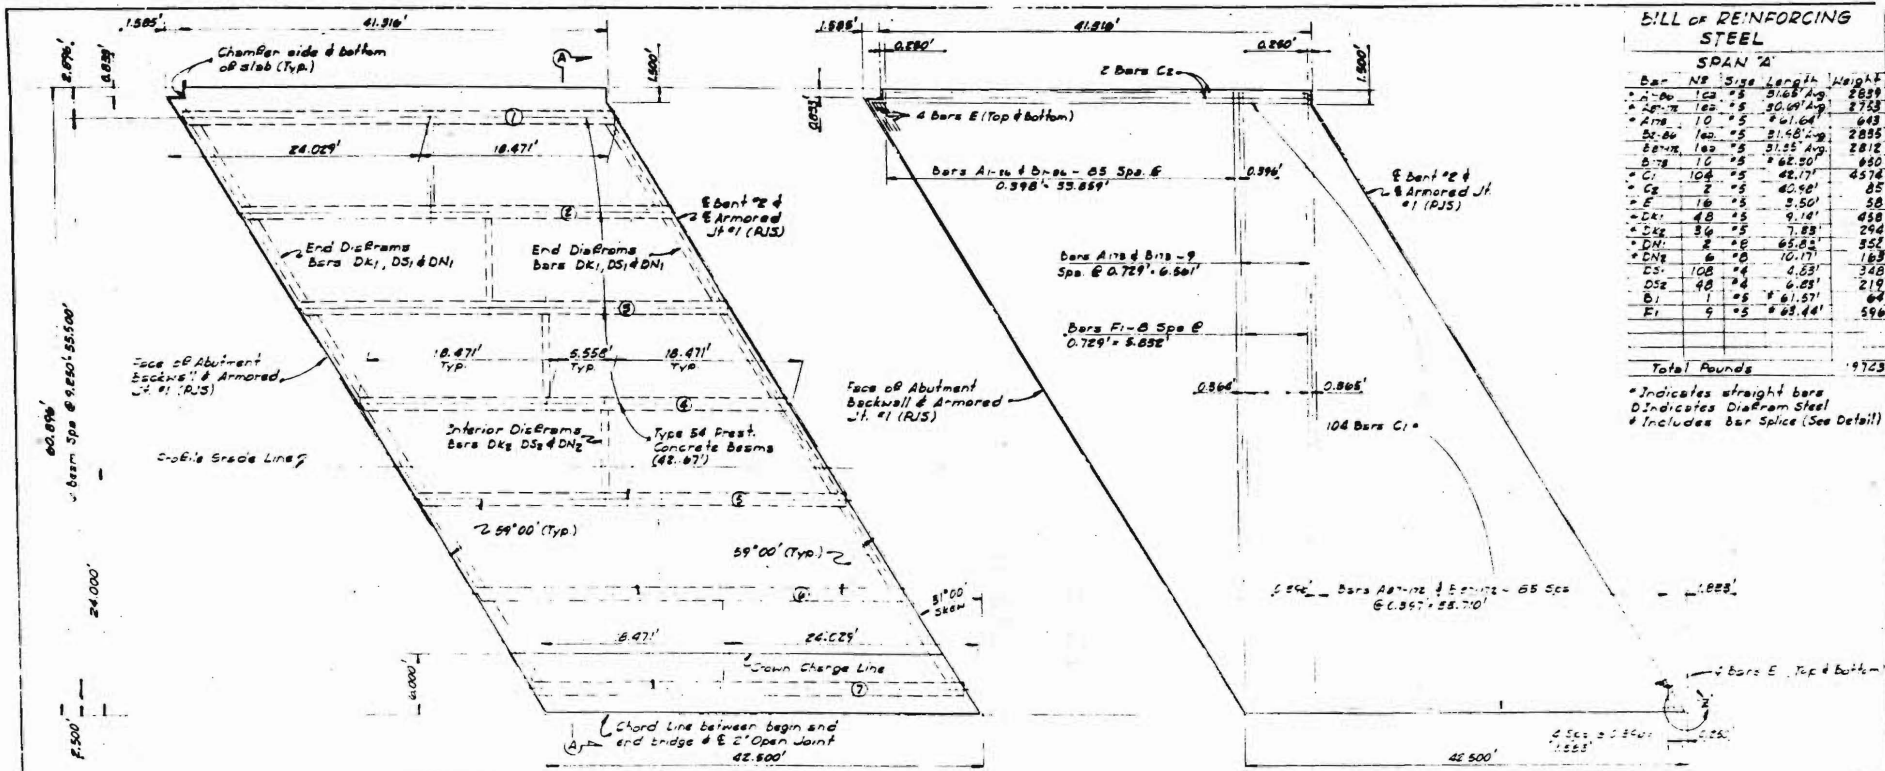 1.585'
41.316'
2.896'
0.833'
Chamfer side & bottom
of slab (Typ.)
A
1.500'
1
24.029'
18.471'
2
℄ Bent #2 &
℄ Armored
Jt #1 (PJS)
End Diaframs
Bars DK1, DS1 & DN1
End Diaframs
Bars DK1, DS1 & DN1
3
Face of Abutment
Backwall & Armored
Jt. #1 (PJS)
18.471'
Typ.
5.558'
Typ.
18.471'
Typ.
4
60.896'
Beam Spa @ 9.250' = 55.500'
Interior Diaframs
Bars DK2 DS2 & DN2
Type 54 Prest.
Concrete Beams
(42.67')
Profile Grade Line
5
59°00' (Typ.)
59°00' (Typ.)
24.000'
6
31°00'
Skew
18.471'
24.029'
Crown Change Line
6.000'
7
2.500'
Chord Line between begin and
end bridge & ℄ 2" Open Joint
A
42.500'
1.585'
41.316'
0.250'
0.250'
2 Bars C2
1.500'
0.833'
4 Bars E (Top & Bottom)
Bars A1-86 & B1-86 - 85 Spa. @
0.398' = 33.859'
0.396'
℄ Bent #2 &
℄ Armored Jt.
#1 (PJS)
Bars A173 & B173 - 9
Spa. @ 0.729' = 6.561'
Bars F1 - 8 Spa @
0.729' = 5.832'
Face of Abutment
Backwall & Armored
Jt. #1 (PJS)
0.364'
0.365'
104 Bars C1
Bars A87-172 & B87-172 - 85 Spa
@ 0.397' = 33.710'
1.823'
Bars E Top & Bottom
0.250'
42.500'
BILL OF REINFORCING
STEEL
SPAN "A"
Bar Nº Size Length Weight
#5 31.65' Avg 2839
#5 30.69' Avg 2753
10 #5 61.64' 643
#5 31.48' Avg 2835
#5 Avg. 2812
10 #5 62.30' 650
C1 104 #5 42.17' 4574
C2 2 #5 40.98' 85
E 16 #5 3.50' 58
DK1 48 #5 9.14' 458
DK2 36 #5 7.83' 294
DN1 2 #8 65.83' 352
DN2 6 #8 10.17' 163
DS1 108 #4 4.83' 348
DS2 48 #4 6.83' 219
B1 1 #5 61.57' 64
F1 9 #5 63.44' 596
Total Pounds
* Indicates straight bars
D Indicates Diafram Steel
‡ Includes Bar Splice (See Detail)